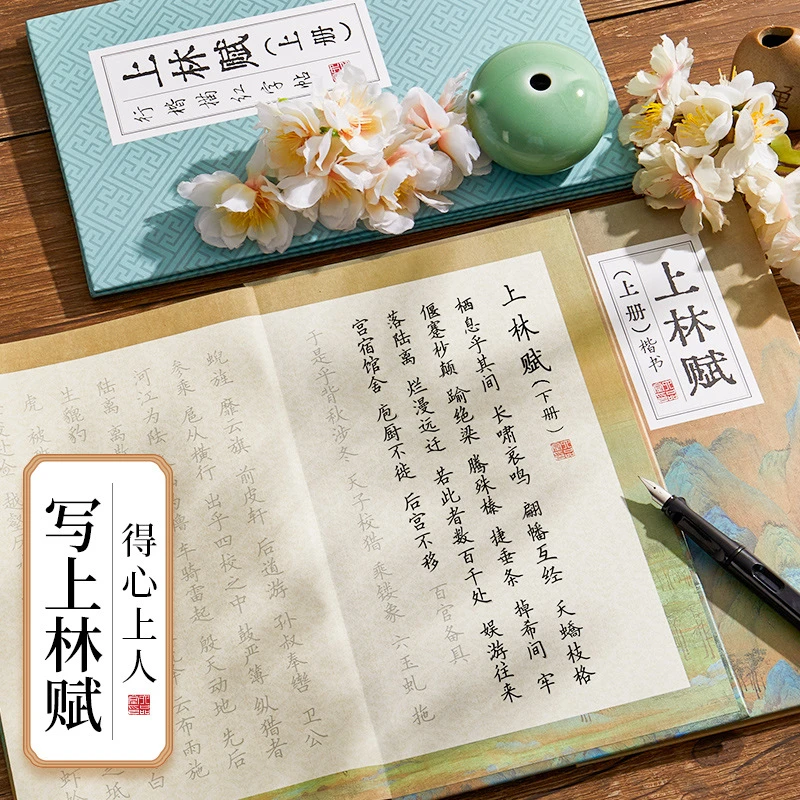 上林赋（上册）
行楷描红字帖
上林赋
（上册）楷书
上林赋（下册）
栖息乎其间 长啸哀鸣 翩幡互经 夭蟜枝格
偃蹇杪颠 踰绝梁 腾殊榛 捷垂条 掉希间 牢
落陆离 烂漫远迁 若此者数百千处 娱游往来
宫宿馆舍 庖厨不徙 后宫不移 百官备具
于是乎背秋涉冬 天子校猎 乘镂象 六玉虬 拖
蜺旌 靡云旗 前皮轩 后道游 孙叔奉辔 卫公
参乘 扈从横行 出乎四校之中 鼓严簿 纵猎者
河江为阹 车骑雷起 殷天动地 先后
陆离 离散 云布雨施
生貔豹
得心上人
写上林赋